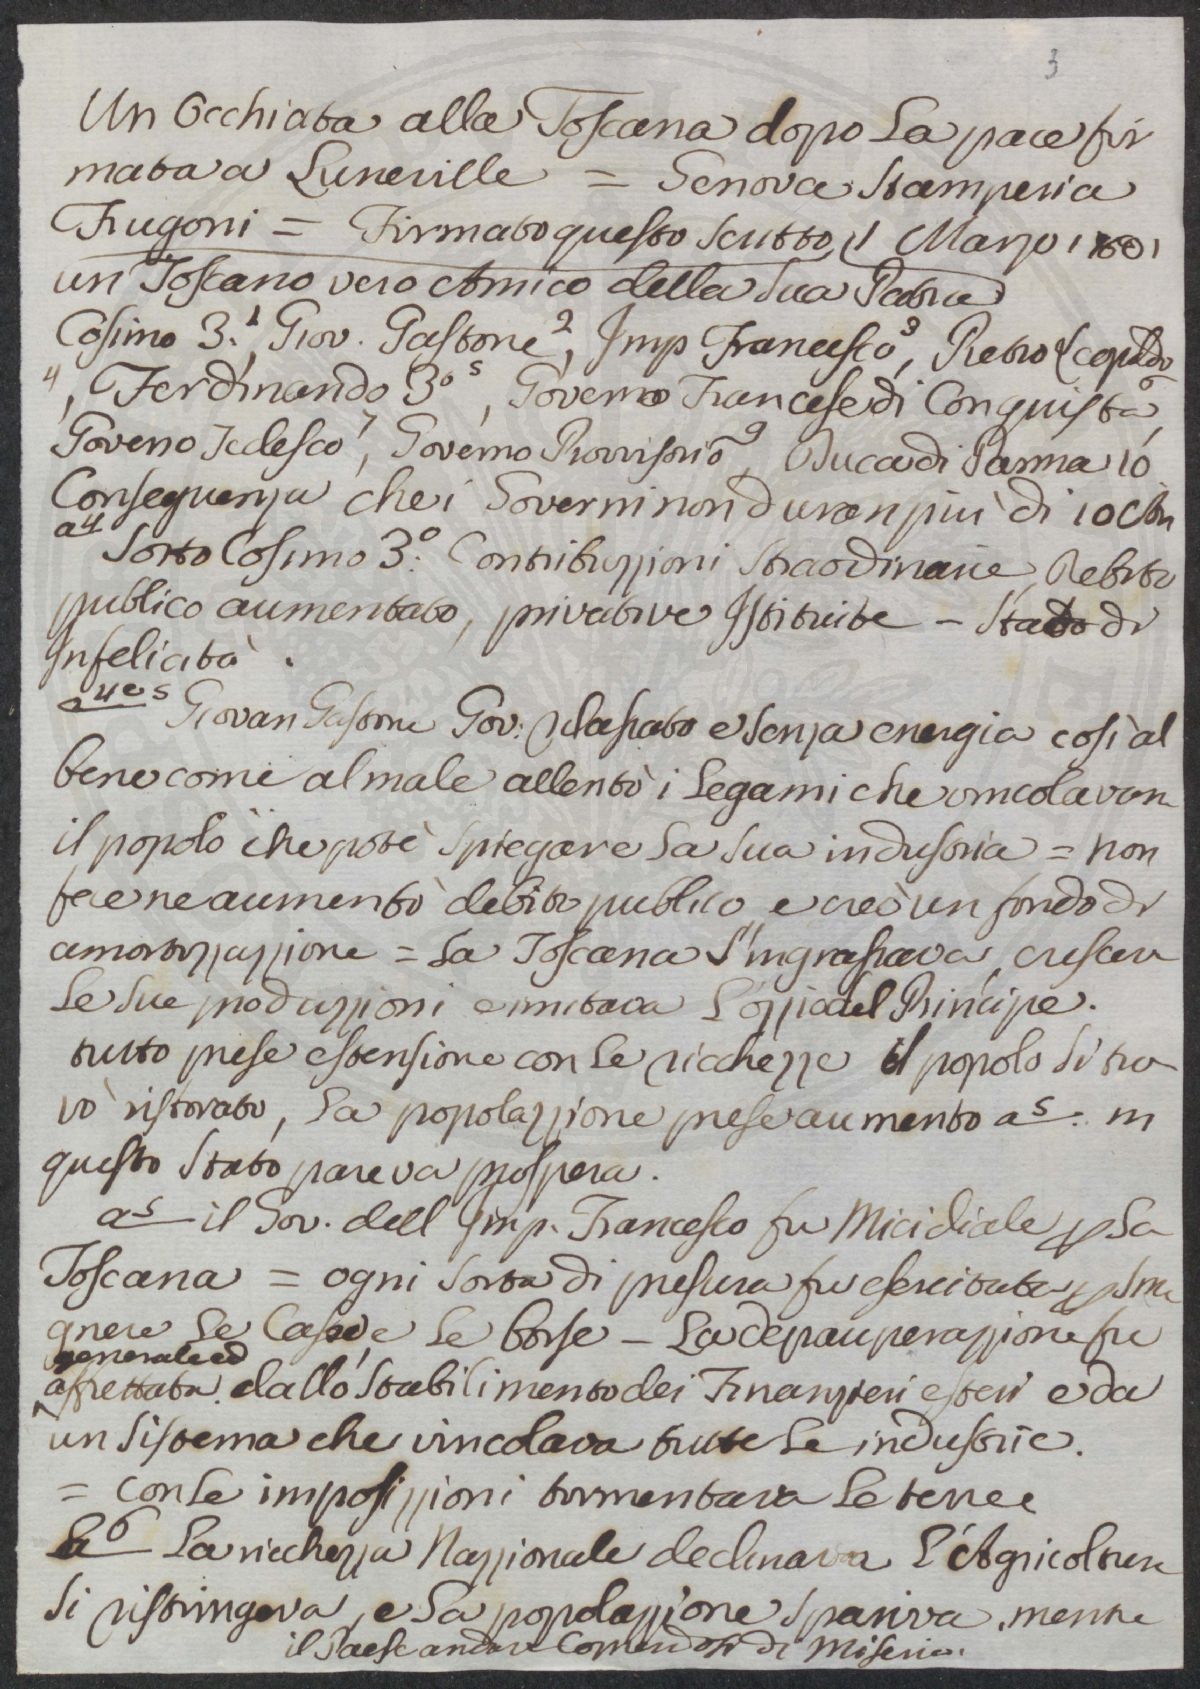 3
Un Occhiata alla Toscana dopo La pace fir
mata a Luneville = Genova Stamperia
Frugoni = Firmato questo scritto, 1 Marzo 1801
un Toscano vero Amico della Sua Patria
Cosimo 3.1, Giov. Gastone 2, Imp Francesco 3, Pietro Leopoldo
4, Ferdinando 3o 5, Governo Francese di Conquista 6,
Goveno Tedesco 7, Governo Provisorio 9, Duca di Parma 10
Conseguenza che i Governi non duran più di 10 An
a4 Sotto Cosimo 3.o Contribuzzioni Straordinarie, Debito
publico aumentato, privative Istituite - Stato di
Infelicità.
a 4 e 5 Giovan Gastone Gov: rilasciato e senza energia così al
bene come al male allentò i Legami che vincolavan
il popolo che potè spiegare La sua industria = non
fece ne aumentò debito publico, e creò un fondo di
amortizzazzione = La Toscana s'ingrassava, cresceva
Le sue produzzioni e imitava L'ozzio del Principe.
tutto prese estensione con Le ricchezze il popolo si tro
vò ristorato, La popolazzione prese aumento a 5. in
questo Stato pareva prospera.
a 5 il Gov. dell Imp. Francesco fu Micidiale p La
Toscana = ogni sorta di presura fu esercitata p smu
gnere Le Casse, e Le borse - La depauperazzione fu
generale ed
afrettata dallo Stabilimento dei Finanzieri esteri e da
un Sistema che vincolava tutte Le industrie.
= con Le imposizzioni tormentava Le terre e
a 6 La ricchezza Nazzionale declinava L'Agricoltura
si ristringeva, e La popolazzione spariva, mentre
il Paese andava Coprendosi di Miseria.